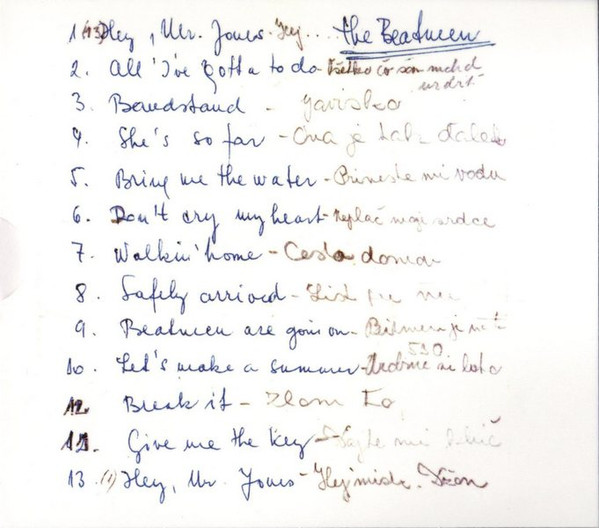 1 (13) Hey, Mr. Jones - Hej... the Beatmen
2. All I've gotta to do - Všetko čo som mohol
urobiť
3. Bandstand - Javisko
4. She's so far - Ona je tak ďaleko
5. Bring me the water - Prineste mi vodu
6. Don't cry my heart - Neplač moje srdce
7. Walkin' home - Cesta domov
8. Safely arrived - List
9. Beatmen are goin on - Bitmeni je
10. Let's make a summer - Urobme si leto
12. Break it - Zlom to
12. Give me the key - Dajte mi kľúč
13 (1) Hey, Mr. Jones - Hej mistr. Džon